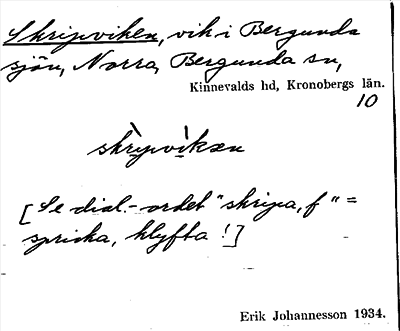 Skripviken, vik i Bergunda
sjön, Norra Bergunda sn,
Kinnevalds hd, Kronobergs län.
10
skrìpvìkæn
[Se dial.-ordet "skripa, f" =
spricka, klyfta!]
Erik Johannesson 1934.